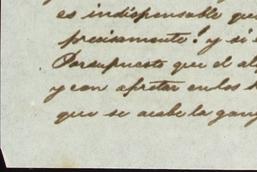 es indispensable que
precisamente! y si
Porsupuesto que el al
y con apretar en los
que se acabe la gan